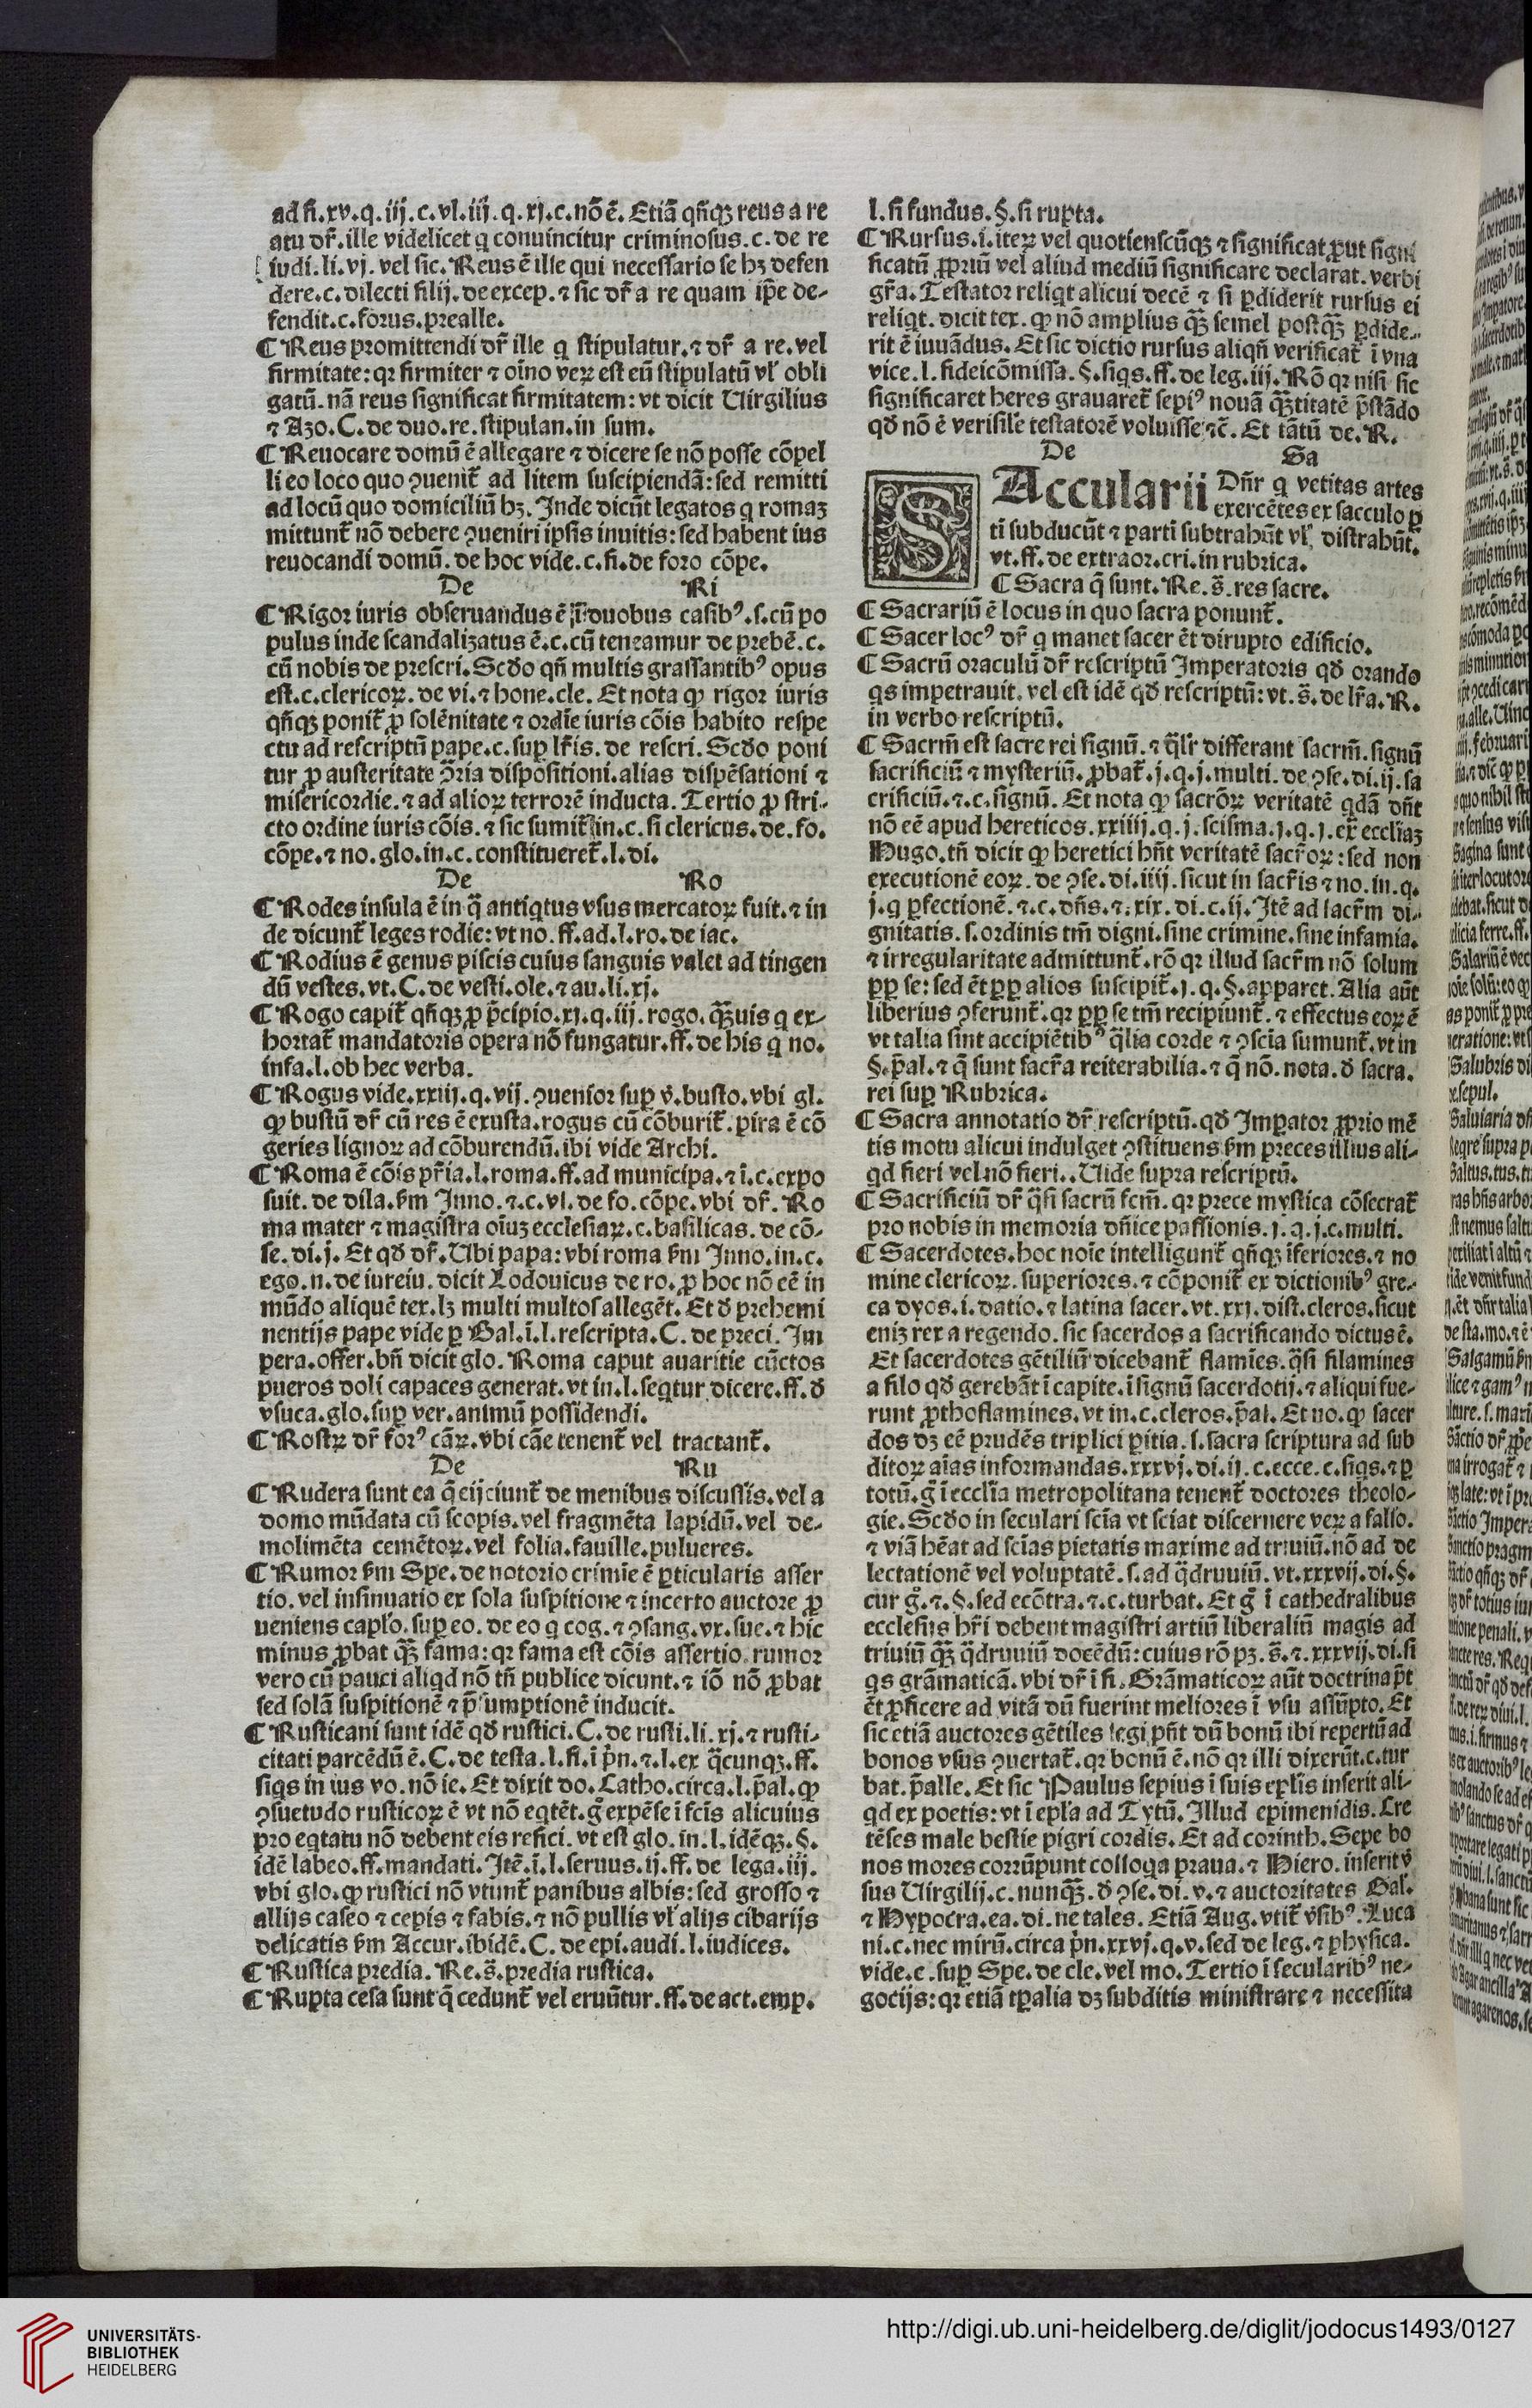 ad fi.xv.q.iij.c.vl.iij.q.xj.c.nō ē. Etiā qn̄qꝫ reus a re
atu dr̄.ille videlicet q conuincitur criminosus.c.de re
iudi.li.vj. vel sic. Reus ē ille qui necessario se hꝫ defen
dere.c.dilecti filij.de excep.⁊ sic dr̄ a re quam ip̄e de-
fendit.c.forus.prealle.
¶ Reus promittendi dr̄ ille q stipulatur.⁊ dr̄ a re.vel
firmitate: qꝛ firmiter ⁊ oīno veꝝ est eū stipulatū vl' obli
gatū.nā reus significat firmitatem: vt dicit Uirgilius
⁊ Azo.C.de duo.re.stipulan.in sum.
¶ Reuocare domū ē allegare ⁊ dicere se nō posse cōpel
li eo loco quo ꝯuenit̄ ad litem suscipiendā: sed remitti
ad locū quo domiciliū hꝫ. Inde dicūt legatos q romaꝫ
mittunt̄ nō debere ꝯueniri ipsis inuitis: sed habent ius
reuocandi domū. de hoc vide.c.fi.de foro cōpe.
De Ri
¶ Rigor iuris obseruandus ē ī duobus casibꝰ.s.cū po
pulus inde scandalizatus ē.c.cū teneamur de prebē.c.
cū nobis de prescri. Scd̄o qn̄ multis grassantibꝰ opus
est.c.clericoꝝ.de vi.⁊ hone.cle. Et nota ꝙ rigor iuris
qn̄qꝫ ponit̄ ꝓ solēnitate ⁊ ordīe iuris cōis habito respe
ctu ad rescriptū pape.c.suꝑ lr̄is.de rescri. Scd̄o poni
tur ꝓ austeritate ꝯ̄ria dispositioni.alias dispēsationi ⁊
misericordie.⁊ ad alioꝝ terrorē inducta. Tertio ꝓ stri-
cto ordine iuris cōis.⁊ sic sumit̄ in.c.si clericus.de.fo.
cōpe.⁊ no.glo.in.c.constitueret̄.l.di.
De Ro
¶ Rodes insula ē in q̄ antiqtus vsus mercatoꝝ fuit.⁊ in
de dicunt̄ leges rodie: vt no.ff.ad.l.ro.de iac.
¶ Rodius ē genus piscis cuius sanguis valet ad tingen
dū vestes.vt.C.de vesti.ole.⁊ au.li.xj.
¶ Rogo capit̄ qn̄qꝫ ꝓ p̄cipio.xj.q.iij.rogo.qꝫuis q ex-
hortat̄ mandatoris opera nō fungatur.ff.de his q no.
infa.l.ob hec verba.
¶ Rogus vide.xxiij.q.vij.ꝯuenior suꝑ v̄.busto.vbi gl.
ꝙ bustū dr̄ cū res ē exusta.rogus cū cōburit̄.pira ē cō
geries lignoꝝ ad cōburendū.ibi vide Archi.
¶ Roma ē cōis pr̄ia.l.roma.ff.ad municipa.⁊ ī.c.expo
suit.de dila.ẜm Inno.⁊.c.vl.de fo.cōpe.vbi dr̄. Ro
ma mater ⁊ magistra oīuꝫ ecclesiaꝝ.c.basilicas.de cō-
se.di.j. Et qd̄ dr̄.Ubi papa: vbi roma ẜm Inno.in.c.
ego.n.de iureiu.dicit Lodouicus de ro.ꝓ hoc nō eē in
mūdo aliquē tex.lꝫ multi multos allegēt. Et d̄ prehemi
nentijs pape vide ꝑ Bal.ī.l.rescripta.C.de preci.Im
pera.offer.bn̄ dicit glo. Roma caput auaritie cūctos
pueros doli capaces generat.vt in.l.seqtur dicere.ff.d̄
vsuca.glo.suꝑ ver.animū possidendi.
¶ Rostꝝ dr̄ forꝰ cāꝝ.vbi cāe tenent̄ vel tractant̄.
De Ru
¶ Rudera sunt ea q̄ eijciunt̄ de menibus discussis.vel a
domo mūdata cū scopis.vel fragmēta lapidū.vel de-
molimēta cemētoꝝ.vel folia.fauille.pulueres.
¶ Rumor ẜm Spe.de notorio crimīe ē ꝑticularis asser
tio.vel insinuatio ex sola suspitione ⁊ incerto auctore ꝓ
ueniens capl'o.suꝑ eo.de eo q cog.⁊ ꝯsang.vx.sue.⁊ hic
minus ꝓbat qꝫ fama: qꝛ fama est cōis assertio.rumor
vero cū pauci aliqd nō tn̄ publice dicunt.⁊ iō nō ꝓbat
sed solā suspitionē ⁊ p̄sumptionē inducit.
¶ Rusticani sunt idē qd̄ rustici.C.de rusti.li.xj.⁊ rusti-
citati parcēdū ē.C.de testa.l.fi.ī p̄n.⁊.l.ex q̄cunqꝫ.ff.
siqs in ius vo.nō ie. Et dixit do.Catho.circa.l.p̄al.ꝙ
ꝯsuetudo rusticoꝝ ē vt nō eqtēt.g̊ expēse ī fcīs alicuius
pro eqtatu nō debent eis refici.vt est glo.in.l.idēqꝫ.§.
idē labeo.ff.mandati. Itē.ī.l.seruus.ij.ff.de lega.iij.
vbi glo.ꝙ rustici nō vtunt̄ panibus albis: sed grosso ⁊
allijs caseo ⁊ cepis ⁊ fabis.⁊ nō pullis vl' alijs cibarijs
delicatis ẜm Accur.ibidē.C.de epi.audi.l.iudices.
¶ Rustica predia. Re.s̄.predia rustica.
¶ Rupta cesa sunt q̄ cedunt̄ vel eruūtur.ff.de act.emp.
l.si fundus.§.si rupta.
¶ Rursus.i.iteꝝ vel quotienscūqꝫ ⁊ significat ꝓut signi
ficatū ꝓpriū vel aliud mediū significare declarat.verbi
gr̄a. Testator reliqt alicui decē ⁊ si ꝑdiderit rursus ei
reliqt. dicit tex.ꝙ nō amplius qꝫ semel postqꝫ ꝑdide-
rit ē iuuādus. Et sic dictio rursus aliqn̄ verificat̄ ī vna
vice.l.fideicōmissa.§.siqs.ff.de leg.iij. Rō qꝛ nisi sic
significaret heres grauaret̄ sepiꝰ nouā qꝫtitatē p̄stādo
qd̄ nō ē verisil'e testatorē voluisse ⁊c̄. Et tātū de.R.
De Sa
SAccularii Dn̄r q vetitas artes
exercētes ex sacculo ꝑ
ti subducūt ⁊ parti subtrahūt vl' distrahūt.
vt.ff.de extraor.cri.in rubrica.
¶ Sacra q̄ sunt. Re.s̄.res sacre.
¶ Sacrariū ē locus in quo sacra ponunt̄.
¶ Sacer locꝰ dr̄ q manet sacer ēt dirupto edificio.
¶ Sacrū oraculū dr̄ rescriptū Imperatoris qd̄ orando
qs impetrauit.vel est idē qd̄ rescriptū: vt.s̄.de lr̄a.R.
in verbo rescriptū.
¶ Sacrm̄ est sacre rei signū.⁊ q̄lr̄ differant sacrm̄.signū
sacrificiū ⁊ mysteriū.ꝓbat̄.j.q.j.multi.de ꝯse.di.ij.sa
crificiū.⁊.c.signū. Et nota ꝙ sacrōꝝ veritatē qdā dn̄t
nō eē apud hereticos.xxiiij.q.j.scisma.j.q.j.ex̄ eccl'iaꝫ
Hugo.tn̄ dicit ꝙ heretici hn̄t veritatē sacr̄oꝝ: sed non
executionē eoꝝ.de ꝯse.di.iiij.sicut in sacr̄is ⁊ no.in.q.
j.q ꝑfectionē.⁊.c.dn̄s.⁊.xix.di.c.ij. Itē ad sacr̄m di-
gnitatis.s.ordinis tm̄ digni.sine crimine.sine infamia.
⁊ irregularitate admittunt̄.rō qꝛ illud sacr̄m nō solum
ꝓꝑ se: sed ēt ꝓꝑ alios suscipit̄.j.q.§.apparet. Alia aūt
liberius ꝯferunt̄.qꝛ ꝓꝑ se tm̄ recipiunt̄.⁊ effectus eoꝝ ē
vt talia sint accipiētibꝰ q̄lia corde ⁊ ꝯscīa sumunt̄.vt in
§.p̄al.⁊ q̄ sunt sacr̄a reiterabilia.⁊ q̄ nō.nota.d̄ sacra.
rei suꝑ Rubrica.
¶ Sacra annotatio dr̄ rescriptū.qd̄ Imperator ꝓprio mē
tis motu alicui indulget ꝯstituens ẜm preces illius ali-
qd fieri vel nō fieri.. Uide supra rescriptū.
¶ Sacrificiū dr̄ q̄si sacrū fcm̄.qꝛ prece mystica cōsecrat̄
pro nobis in memoria dn̄ice passionis.j.q.j.c.multi.
¶ Sacerdotes.hoc noīe intelligunt̄ qn̄qꝫ īferiores.⁊ no
mine clericoꝝ.superiores.⁊ cōponit̄ ex dictionibꝰ gre-
ca dyos.i.datio.⁊ latina sacer.vt.xxj.dist.cleros.sicut
enīꝫ rex a regendo.sic sacerdos a sacrificando dictus ē.
Et sacerdotes gētiliū dicebant̄ flamīes.q̄si filamines
a filo qd̄ gerebāt ī capite.ī signū sacerdotij.⁊ aliqui fue-
runt ꝓthoflamines.vt in.c.cleros.p̄al. Et no.ꝙ sacer
dos dꝫ eē prudēs triplici ꝑitia.s.sacra scriptura ad sub
ditoꝝ aīas informandas.xxxvj.di.ij.c.ecce.c.siqs.⁊ ꝑ
totū.g̊ ī eccl'ia metropolitana tenent̄ doctores theolo-
gie. Scd̄o in seculari scīa vt sciat discernere veꝝ a falso.
⁊ viā hēat ad scīas pietatis maxime ad triuiū.nō ad de
lectationē vel voluptatē.s.ad q̄druuiū.vt.xxxvij.di.§.
cur g̊.⁊.§.sed ecōtra.⁊.c.turbat. Et g̊ ī cathedralibus
ecclesijs hr̄i debent magistri artiū liberaliū magis ad
triuiū qꝫ q̄druuiū docēdū: cuius rō pꝫ.s̄.⁊.xxxvij.di.si
qs grāmaticā.vbi dr̄ ī fi. Grāmaticoꝝ aūt doctrina p̄t
ēt ꝓficere ad vitā dū fuerint meliores ī vsu assūpto. Et
sic etiā auctores gētiles legi pn̄t dū bonū ibi repertū ad
bonos vsus ꝯuertat̄.qꝛ bonū ē.nō qꝛ illi dixerūt.c.tur
bat.p̄alle. Et sic Paulus sepius ī suis epl'is inserit ali-
qd ex poetis: vt ī epl'a ad Tytū. Illud epimenidis. Cre
tēses male bestie pigri cordis. Et ad corinth. Sepe bo
nos mores corrūpunt colloqa praua.⁊ Hiero.inserit v̄
sus Uirgilij.c.nunqꝫ.d̄ ꝯse.di.v.⁊ auctoritates Gal.
⁊ Hypocra.ea.di.ne tales. Etiā Aug.vtit̄ v̄sibꝰ. Luca
ni.c.nec mirū.circa p̄n.xxvj.q.v.sed de leg.⁊ physica.
vide.c.suꝑ Spe.de cle.vel mo. Tertio ī secularibꝰ ne-
gocijs: qꝛ etiā tꝑalia dꝫ subditis ministrare ⁊ necessita
UNIVERSITÄTS-
BIBLIOTHEK
HEIDELBERG
http://digi.ub.uni-heidelberg.de/diglit/jodocus1493/0127